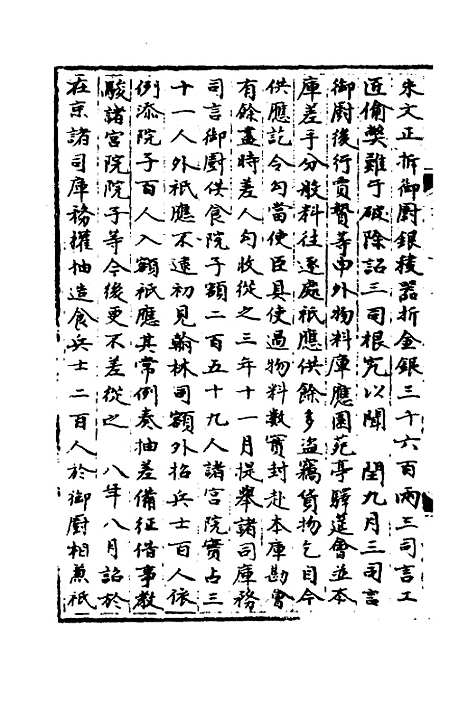 朱文正折御厨銀稜器折金銀三千六百兩三司言工
匠偷獘難于破除詔三司根究以聞　閏九月三司言
御厨後行賈贇等申外物料庫應園苑亭驛筵會並本
庫差手分般料往逐處祇應供餘多盜竊貨物乞自今
供應訖令勾當使臣具使過物料數實封赴本庫勘會
有餘畫時差人勾收從之三年十一月提舉諸司庫務
司言御厨供食院子額二百五十九人諸宮院實占三
十一人外祇應不逮初見翰林司額外招兵士百人依
例添院子百人入額祇應其常例奏抽差備征借事教
駿諸宮院院子等今後更不差從之　八年八月詔於
在京諸司庫務權抽造食兵士二百人於御厨相兼祇